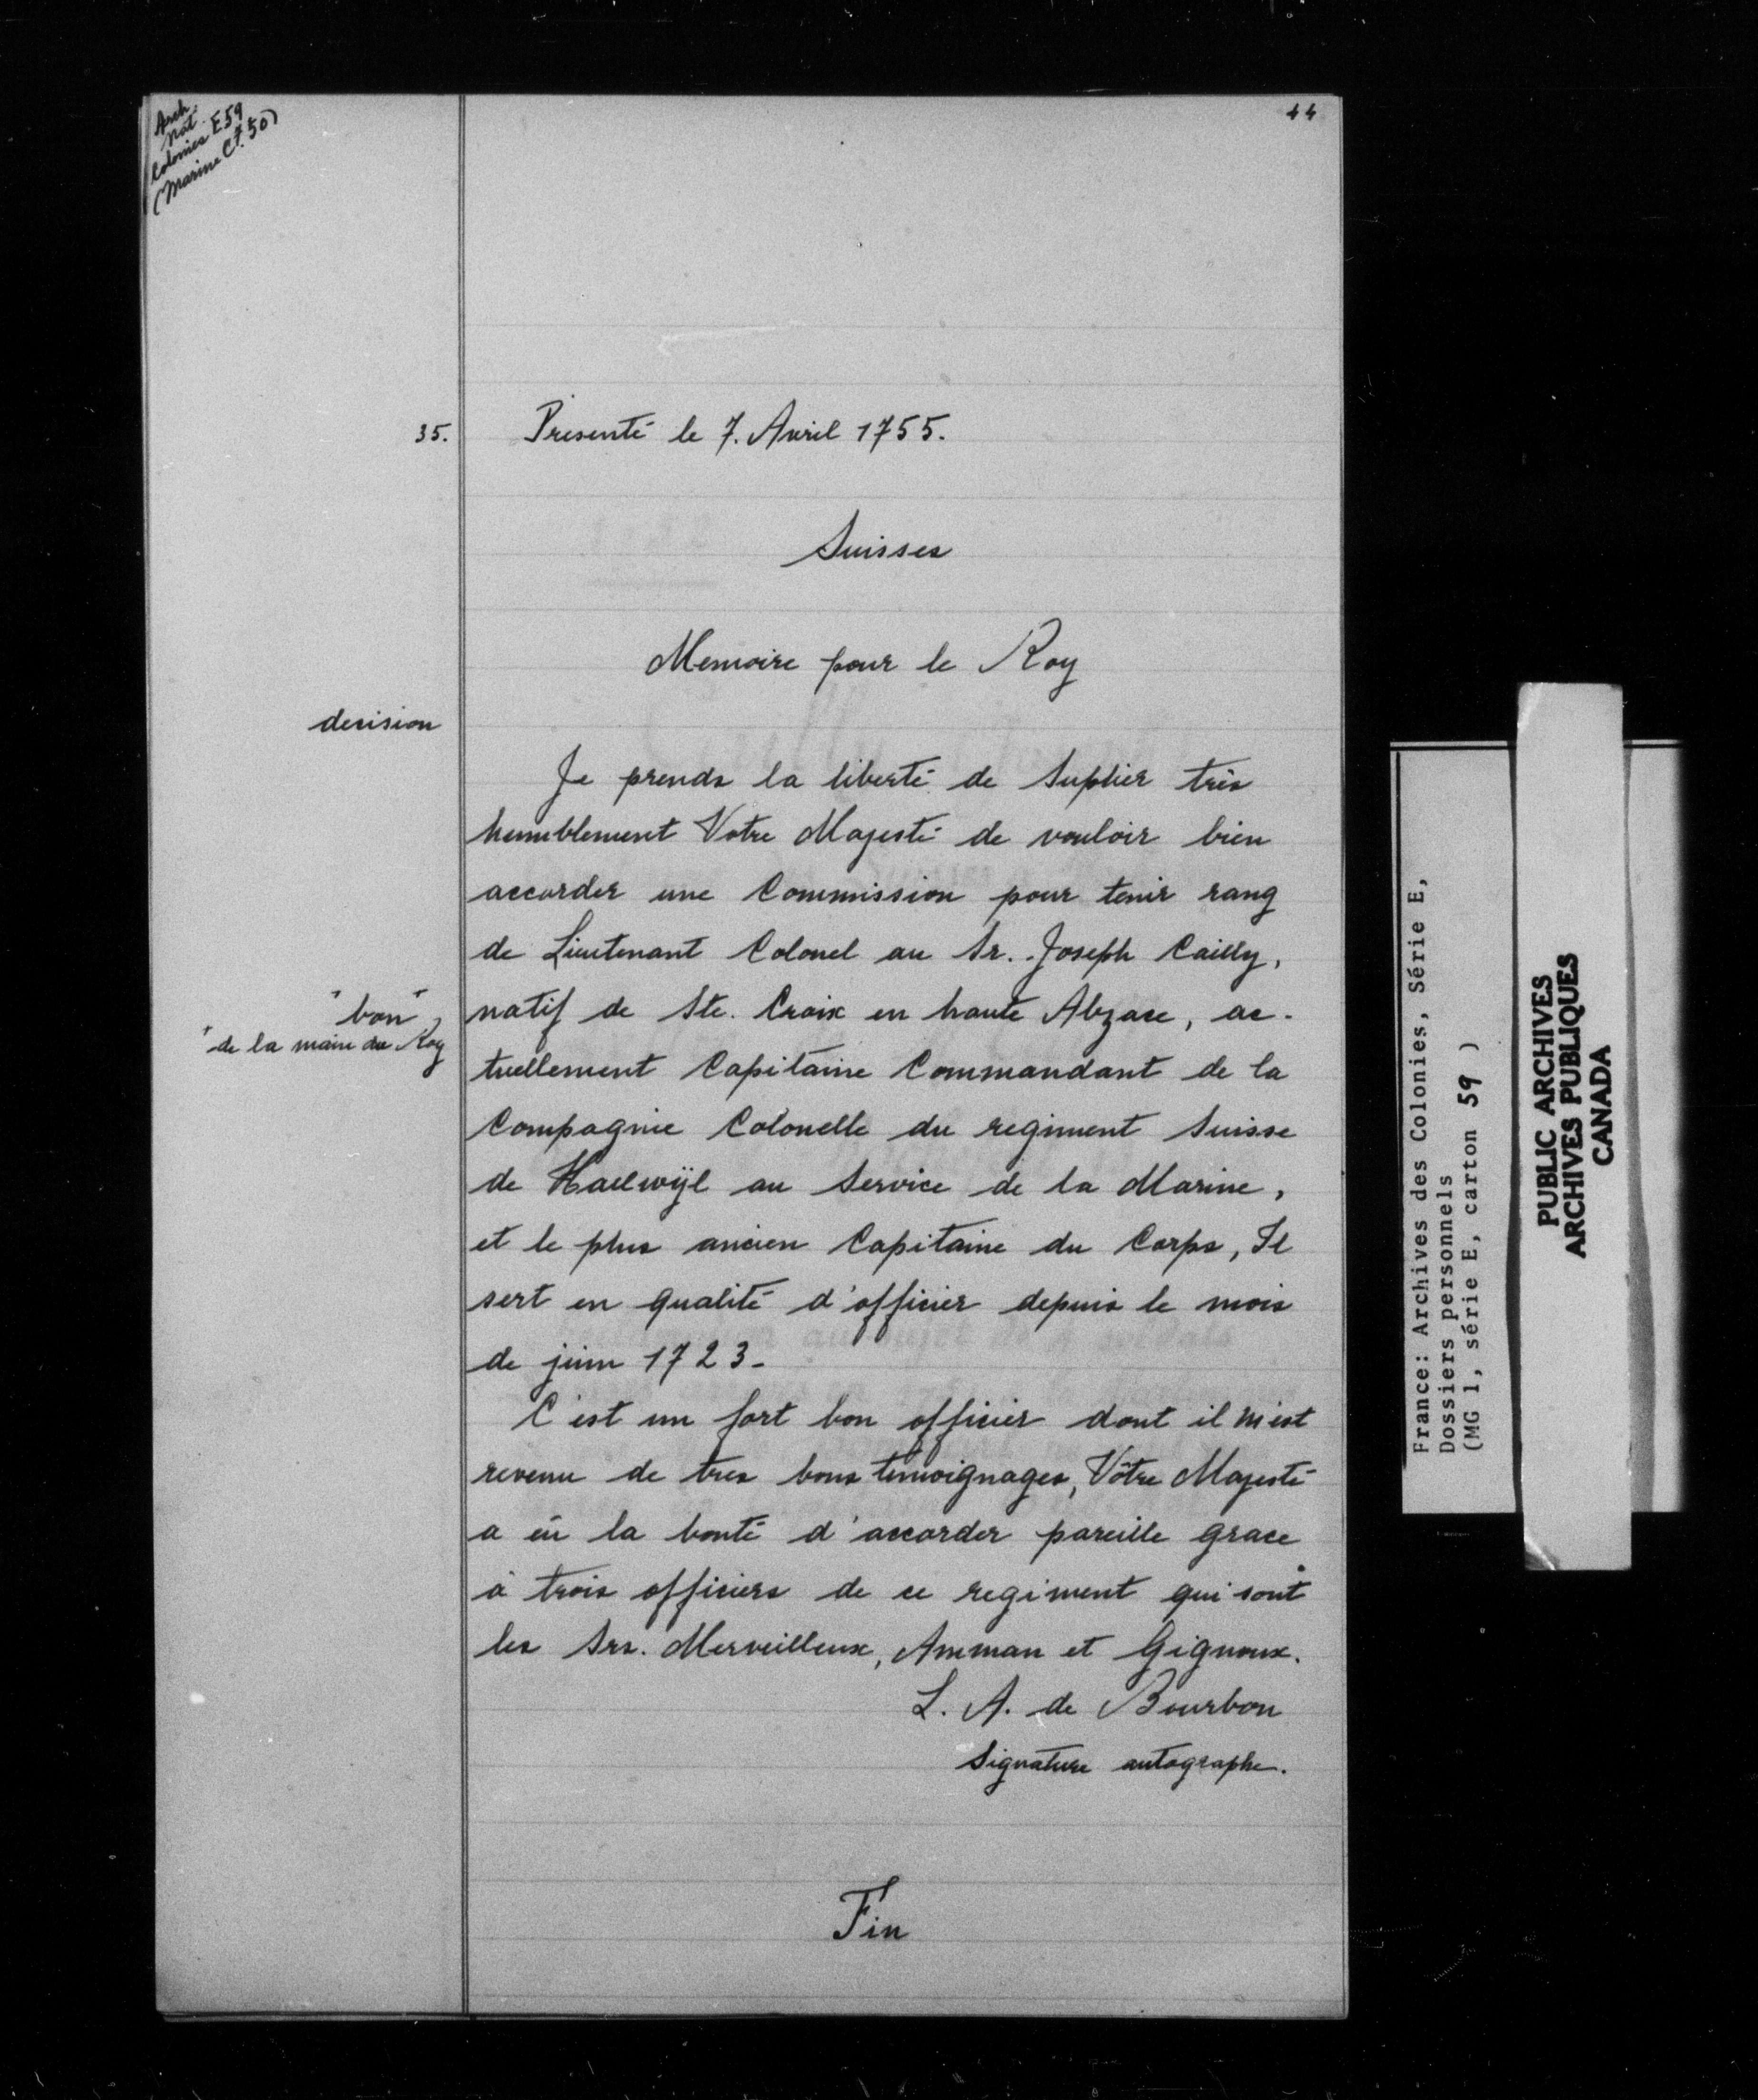 Arch.
nat.
Colonies E 59
(Marine Ct. 50)
44
35.
Presenté le 7. Avril 1755.
Suisses
Memoire pour le Roy
decision
Je prends la liberté de suplier très
humblement Votre Majesté de vouloir bien
accorder une Commission pour tenir rang
de Lieutenant Colonel au Sr. Joseph Cailly,
"bon"
de la main du Roy
natif de Ste. Croix en haute Abzace, ac-
tuellement Capitaine Commandant de la
Compagnie Colonelle du regiment Suisse
de Haelwÿl au Service de la Marine,
et le plus ancien Capitaine du Corps, Il
sert en qualité d'officier depuis le mois
de juin 1723-
C'est un fort bon officier dont il m'est
revenu de tres bons temoignages, Vôtre Majesté
a eü la bonté d'accorder pareille grace
à trois officiers de ce regiment qui sont
les Srs. Merveilleux, Amman et Gignoux.
L. A. de Bourbon
Signature autographe.
Fin
France: Archives des Colonies, Série E,
Dossiers personnels
(MG 1, série E, carton 59 )
PUBLIC ARCHIVES
ARCHIVES PUBLIQUES
CANADA